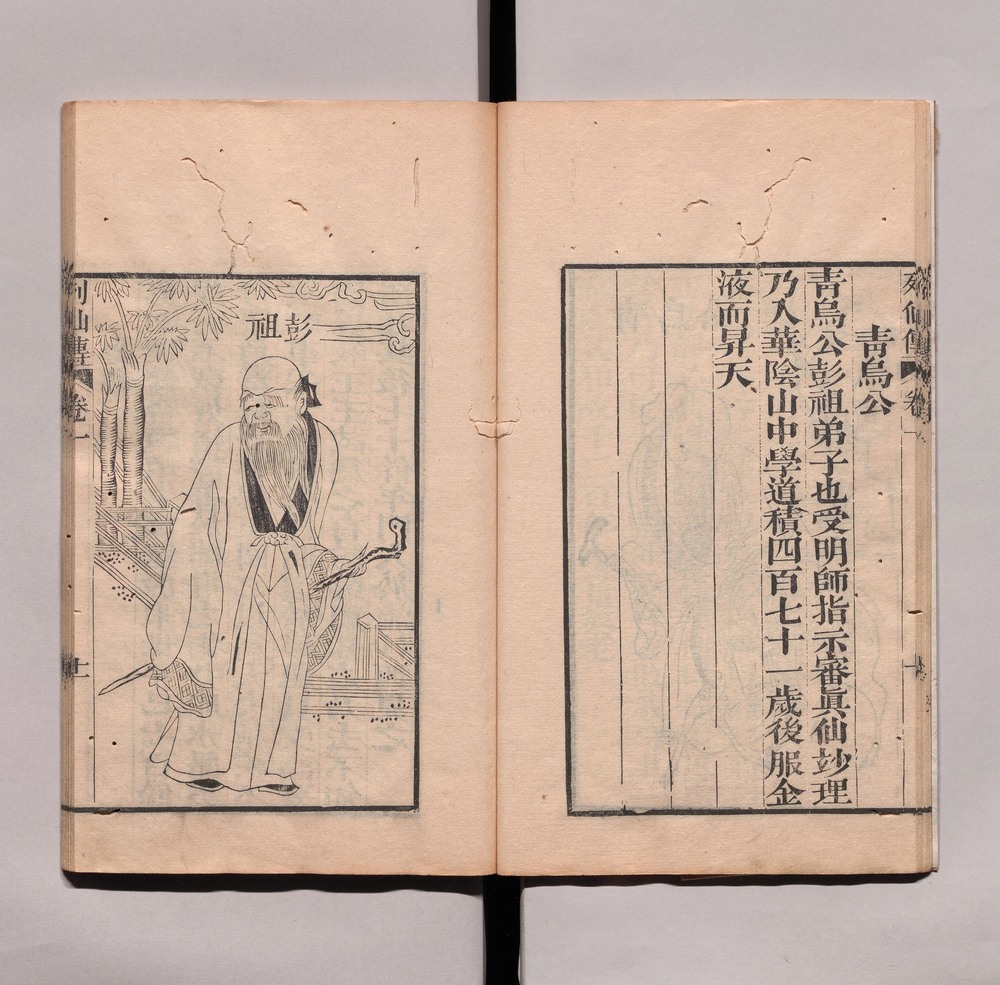 列仙傳 卷一 十
青烏公
青烏公彭祖弟子也受明師指示審眞仙妙理
乃入華陰山中學道積四百七十一歲後服金
液而昇天
彭祖
列仙傳 卷一 十一